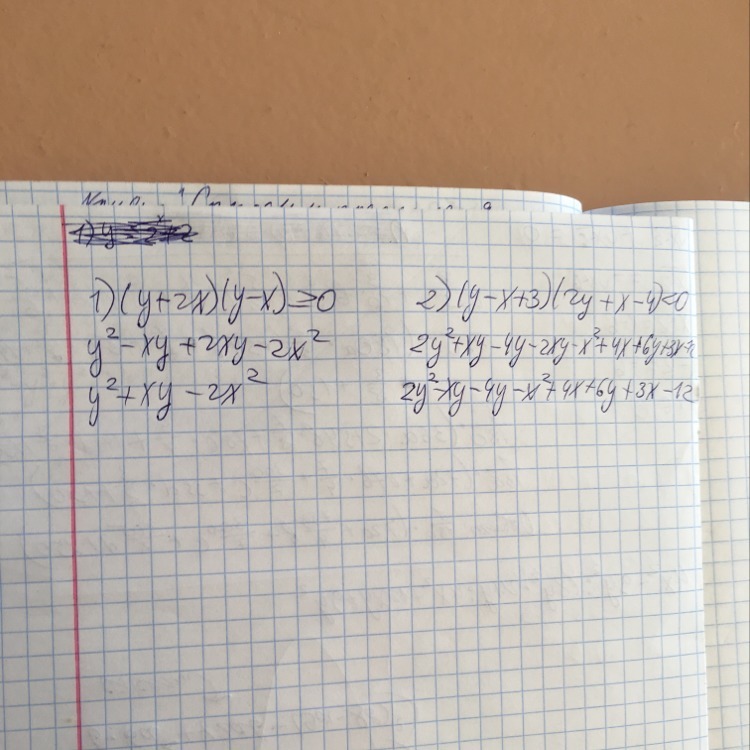 1) (y+2x)(y-x)≥0
y²-xy+2xy-2x²
y²+xy-2x²
2) (y-x+3)(2y+x-4)<0
2y²+xy-4y-2xy-x²+4x+6y+3x-
2y²-xy-4y-x²+4x+6y+3x-12